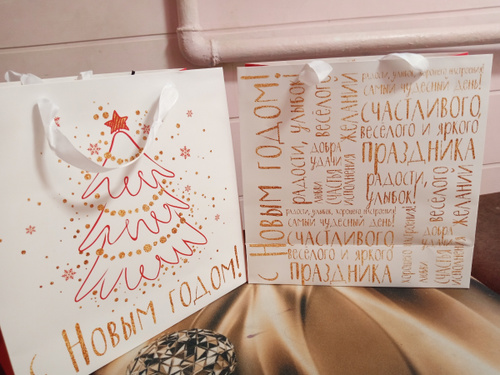 С Новым годом!
С Новым годом!
радости, улыбок!
добра
удачи
любви
счастья
исполнения
весёлого
желаний
радости, улыбок, хорошего настроения!
самый чудесный день!
счастливого,
весёлого и яркого
праздника
радости,
улыбок!
радости, улыбок, хорошего настроения!
самый чудесный день!
счастливого
весёлого и яркого
праздника
хорошего
настроения!
добра
удачи
любви
счастья
исполнения
весёлого
желаний